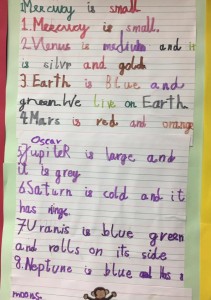 1Mercury is small
1.Mercury is small.
2.Venus is medium and
is silvr and gold
3.Earth is Blue and
green.We live on Earth
4Mars is red and orange
Oscar
5Jupiter is large and
it is grey
6Saturn is cold and it
has rings.
7Uranis is blue green
and rolls on its side
8.Neptune is blue and Has
moons.